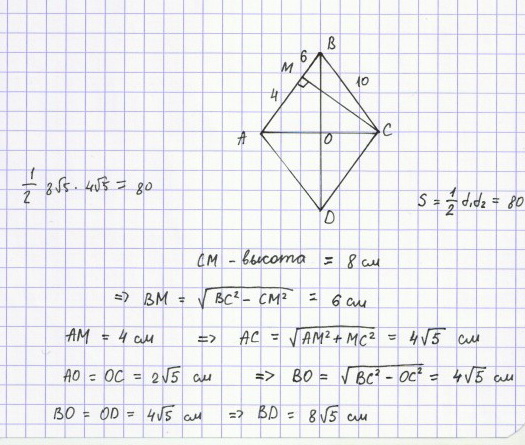 B
6
M
10
4
A
O
C
D
1/2 8√5 · 4√5 = 80
S = 1/2 d₁d₂ = 80
CM - высота = 8 см
=> BM = √(BC² - CM²) = 6 см
AM = 4 см => AC = √(AM² + MC²) = 4√5 см
AO = OC = 2√5 см => BO = √(BC² - OC²) = 4√5 см
BO = OD = 4√5 см => BD = 8√5 см